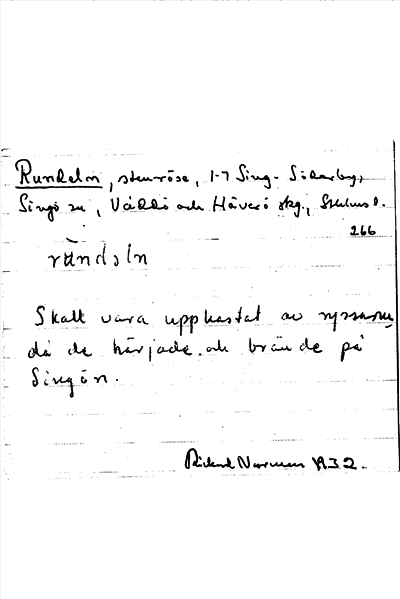 Rundeln, stenröse, 1-7 Sing-Söderby,
Singö sn, Väddö och Häverö skg., Sthlms l.
266
rundəln
Skall vara uppkastat av ryssarne,
då de härjade och brände på
Singön.
Rickard Norman 1932.